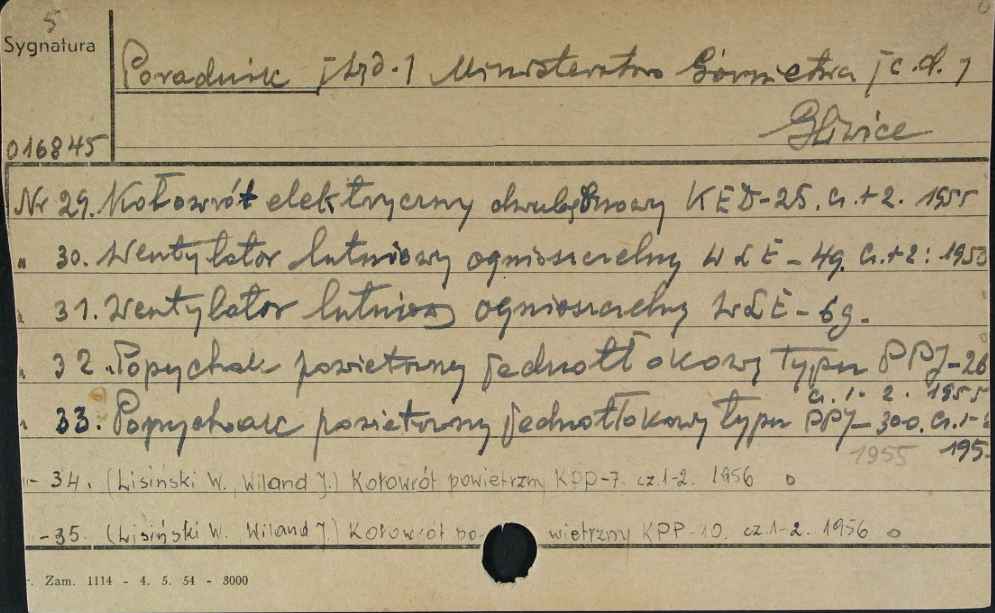 5
Sygnatura
Poradnik [Wyd.] Ministerstwo Górnictwa [c.d.]
Gliwice
016845
Nr 29. Kołowrót elektryczny dwubębnowy KED-25. Cz. 1+2. 1955
" 30. Wentylator lutniowy ognioszczelny WLE-4g. Cz. 1+2: 1953
" 31. Wentylator lutniowy ognioszczelny WLE-6g.
" 32. Popychak powietrzny jednotłokowy typu PPJ-26
Cz. 1-2. 1955
" 33. Popychak powietrzny jednotłokowy typu PPJ-300. Cz. 1-2
1955 195
"- 34. (Lisiński W., Wiland J.) Kołowrót powietrzny KPP-7. cz. 1-2. 1956 o
-35. (Lisiński W. Wiland J.) Kołowrót powietrzny KPP-10. cz. 1-2. 1956 o
Zam. 1114 - 4. 5. 54 - 3000